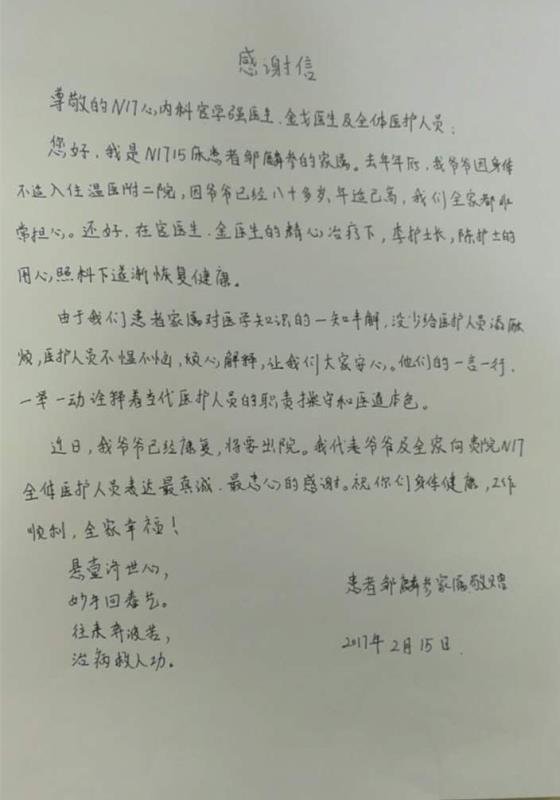 感谢信
尊敬的N17心内科宫学强医生、金戈医生及全体医护人员:
您好,我是N1715床患者邹麟参的家属。去年年底,我爷爷因身体
不适入住温医附二院,因爷爷已经八十多岁,年迈已高,我们全家都非
常担心。还好,在宫医生、金医生的精心治疗下,李护士长,陈护士的
用心照料下逐渐恢复健康。
由于我们患者家属对医学知识的一知半解,没少给医护人员添麻
烦,医护人员不愠不恼,烦心解释,让我们大家安心。他们的一言一行,
一举一动诠释着当代医护人员的职责操守和医道本色。
近日,我爷爷已经康复,将要出院。我代表爷爷及全家向贵院N17
全体医护人员表达最真诚、最衷心的感谢。祝你们身体健康,工作
顺利,全家幸福!
悬壶济世心,
妙手回春艺。
往来奔波苦,
治病救人功。
患者邹麟参家属敬赠
2017年2月15日.